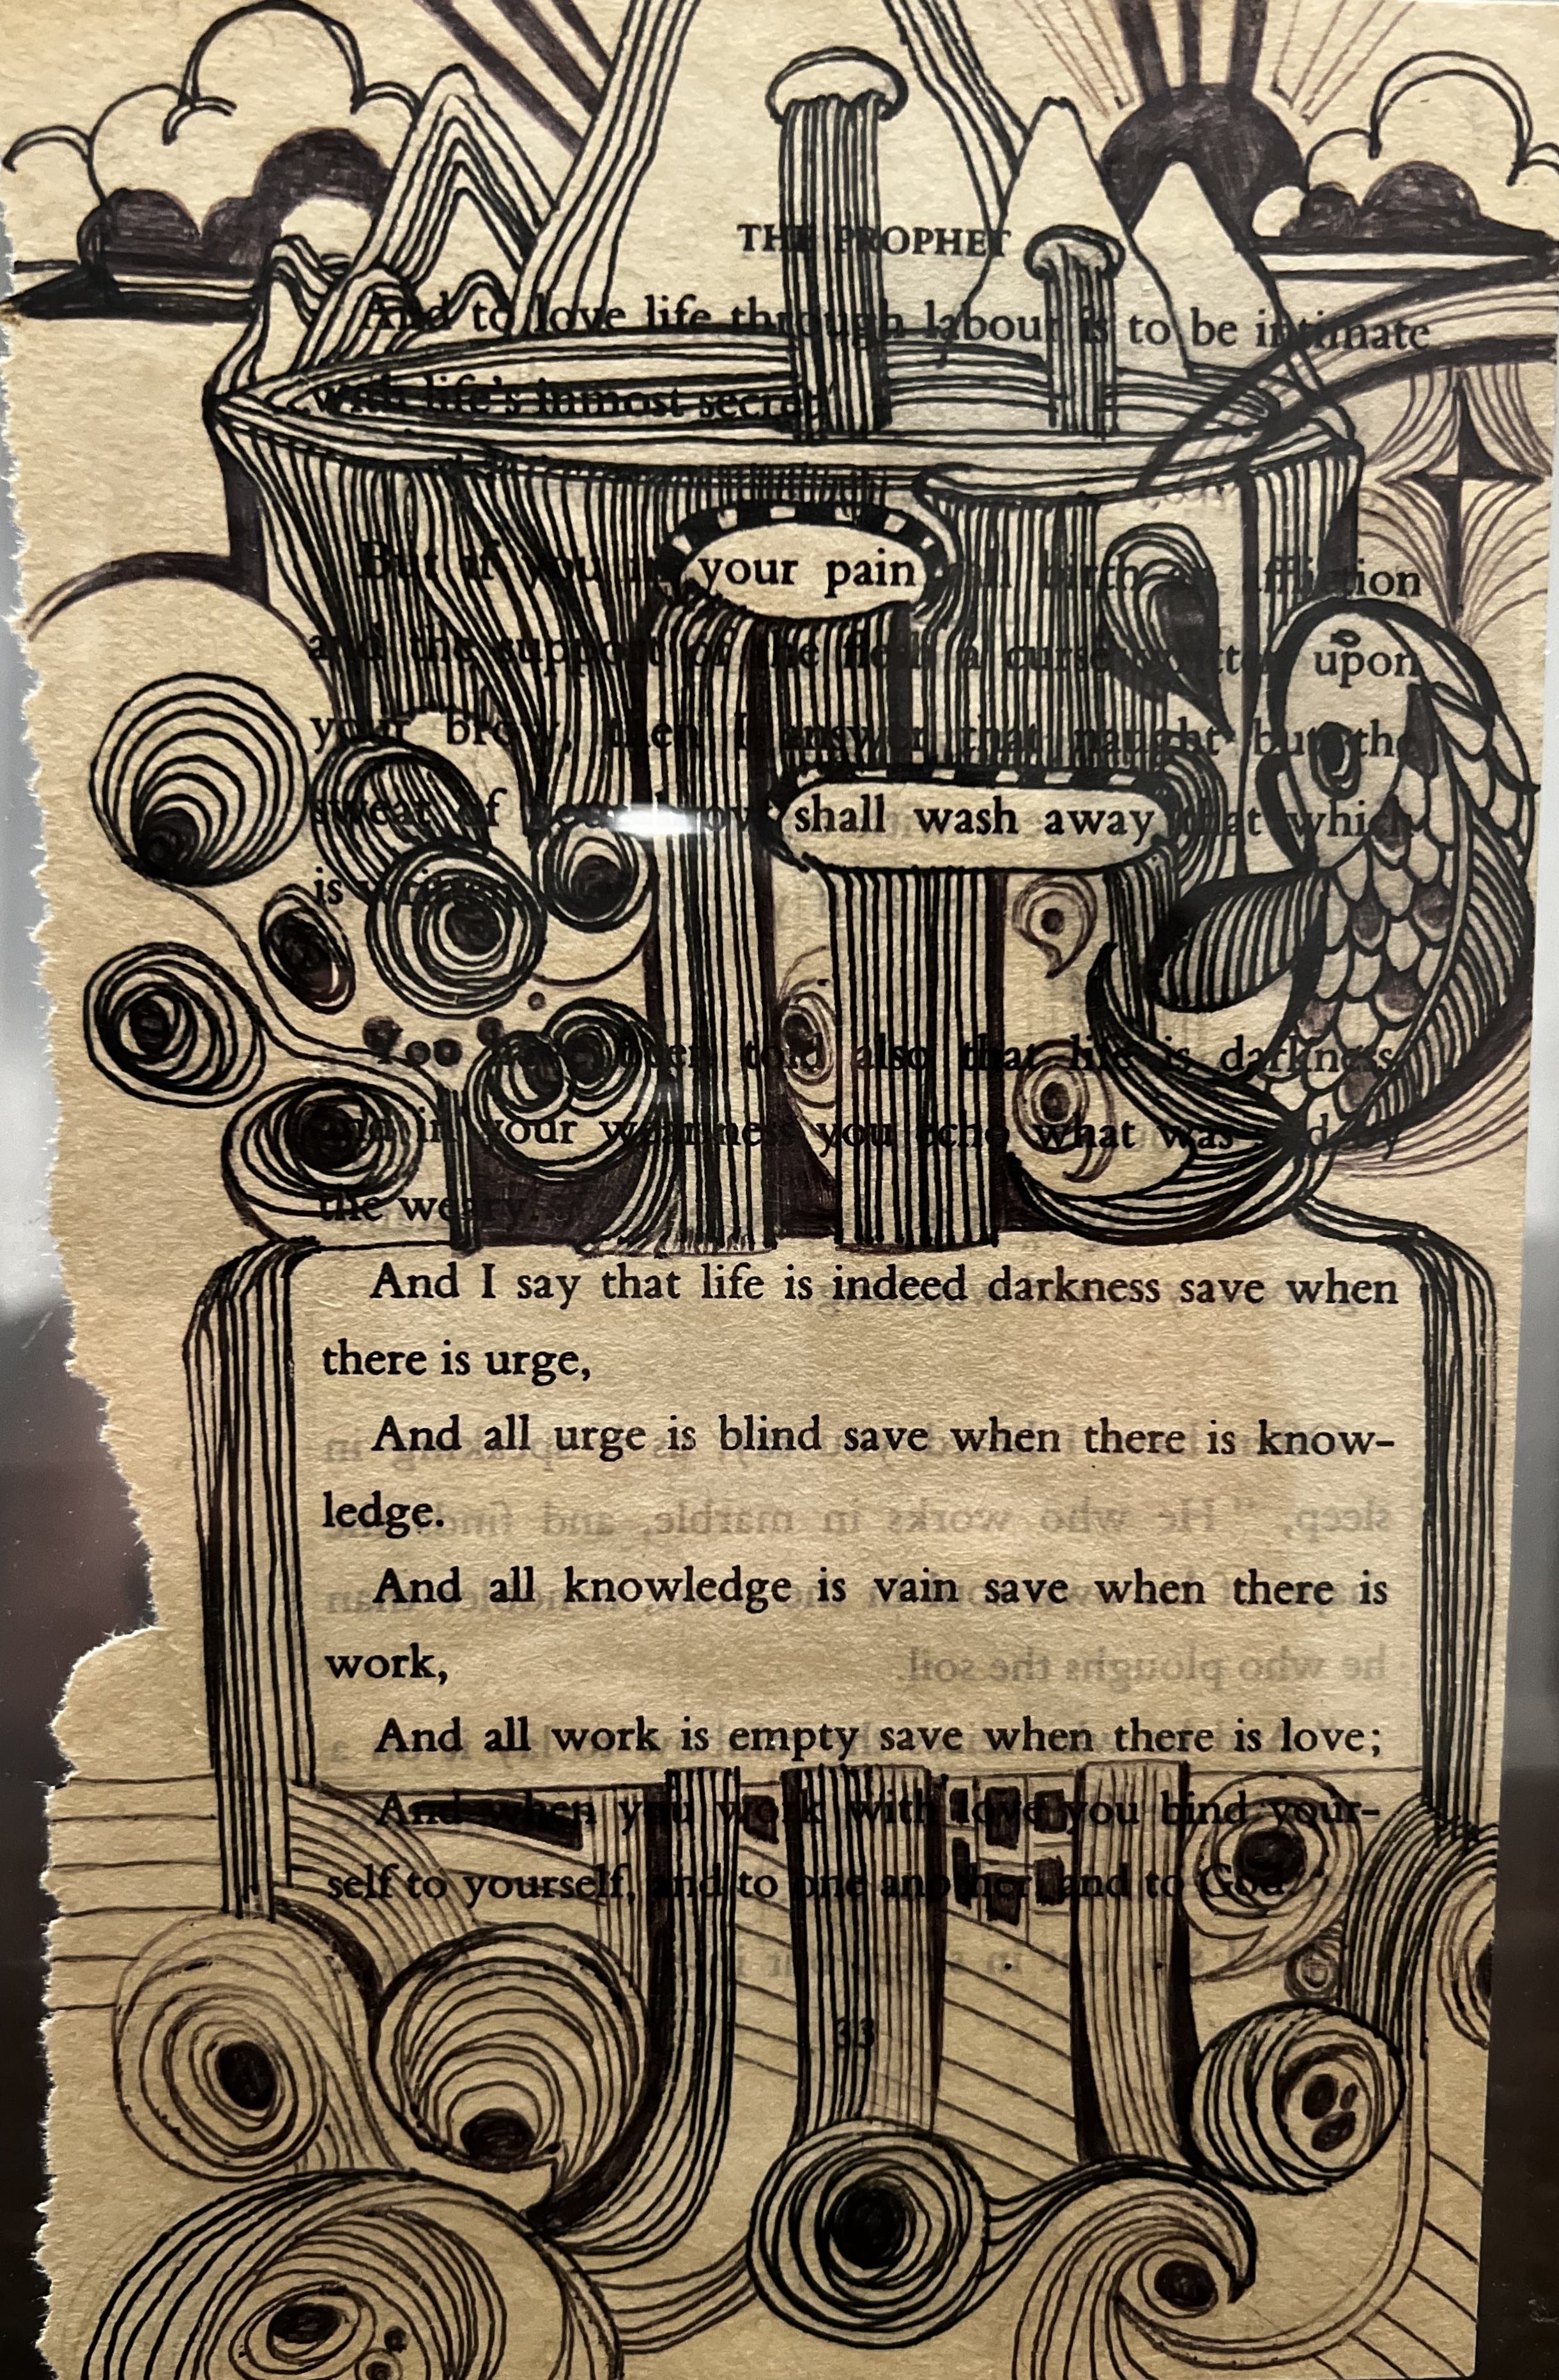 THE PROPHET
And to love life through labour is to be intimate
with life's inmost secret
But if you in your pain call birth an affliction
and the support of the flesh a curse written upon
your brow, then I answer that naught but the
sweat of your brow shall wash away that which
is written
You have been told also that life is darkness,
and in your weariness you echo what was said by
the weary.
And I say that life is indeed darkness save when
there is urge,
And all urge is blind save when there is know-
ledge.
And all knowledge is vain save when there is
work,
And all work is empty save when there is love;
And when you work with love you bind your-
self to yourself, and to one another, and to God.
33